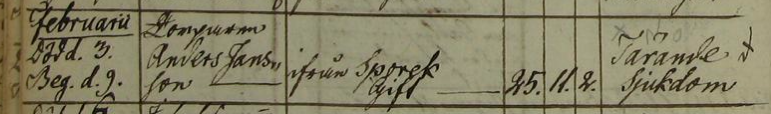 Februarii
Död d. 3.
Beg. d. 9.
Torparen
Anders Jans-
son
ifrån Sporek
Gift
25. 11. 2.
Tärande
Sjukdom